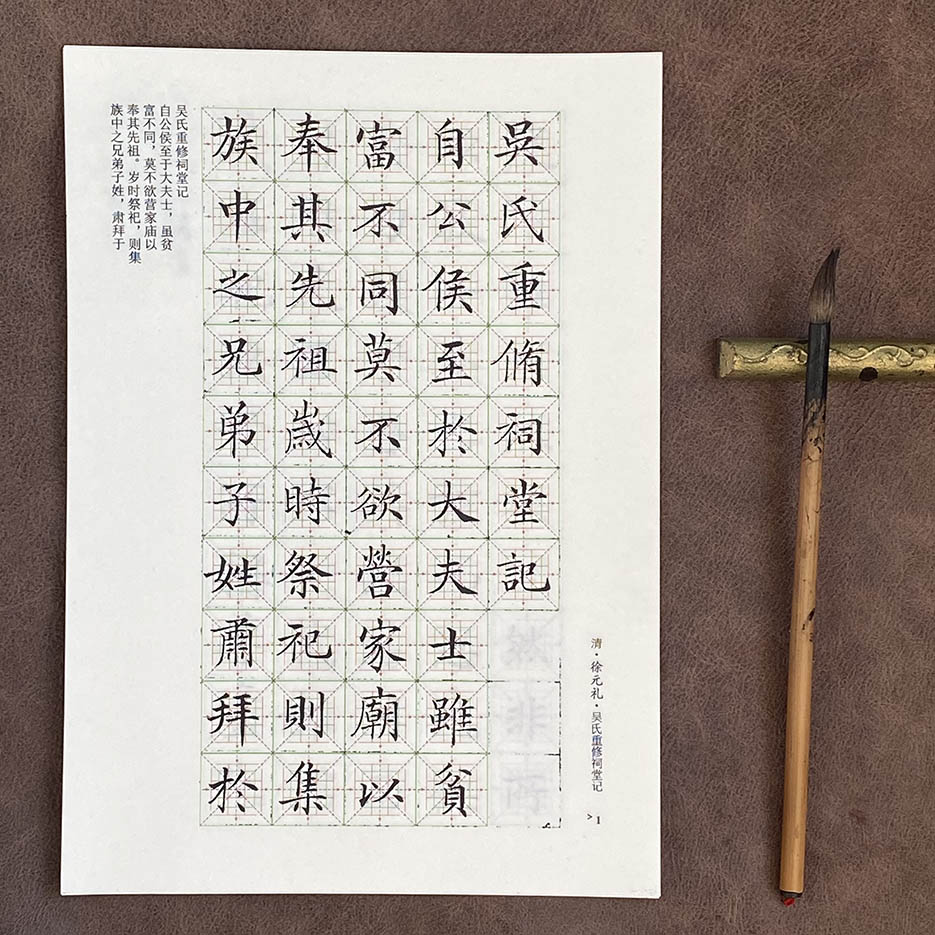 清·徐元礼·吴氏重修祠堂记
>1
吳氏重脩祠堂記
自公侯至於大夫士雖貧
富不同莫不欲營家廟以
奉其先祖歲時祭祀則集
族中之兄弟子姓肅拜於
吴氏重修祠堂记
自公侯至于大夫士，虽贫
富不同，莫不欲营家庙以
奉其先祖。岁时祭祀，则集
族中之兄弟子姓，肃拜于